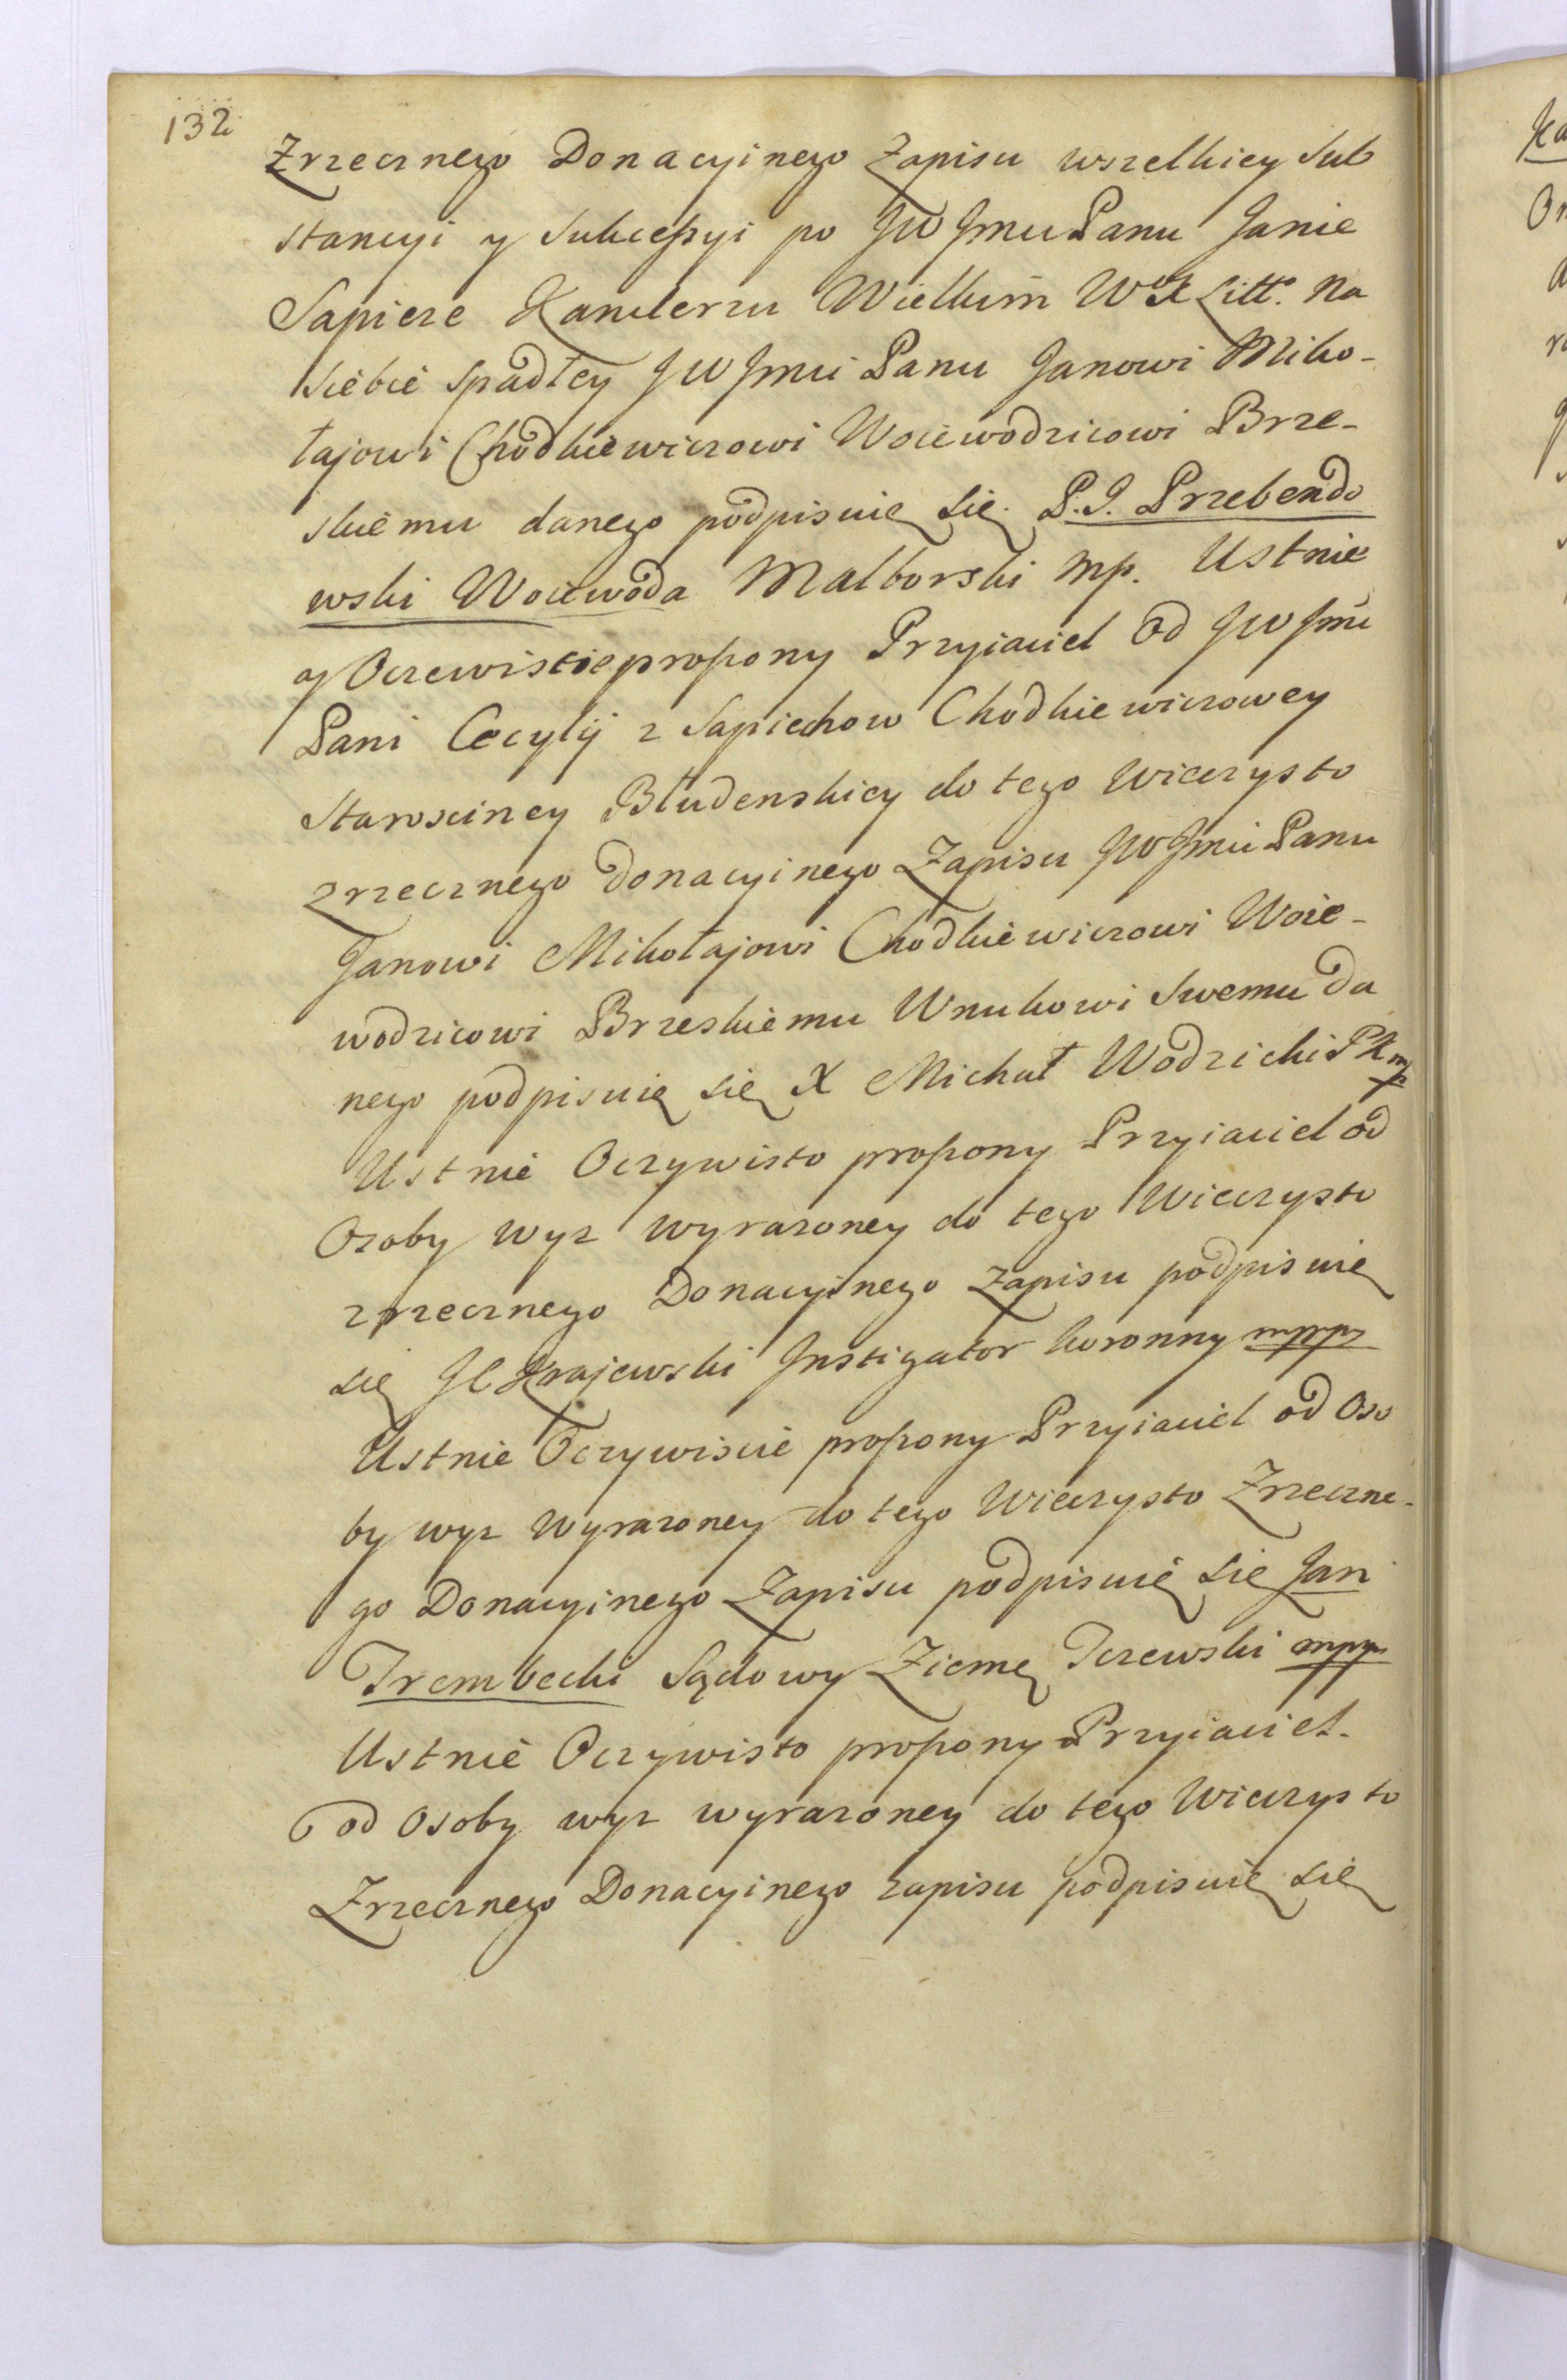 132
Zrzecznego Donacyinego Zapisu wszelkiey Sub
stancyi y Sukceßyi po JW Jmu Panu Janie
Sapieze Kanclerzu Wielkim WXLitt. Na
siebie spadłey JW Jmci Panu Janowi Miko-
łajowi Chodkiewiczowi Woiewodzicowi Brze-
skiemu danego podpisuię się. P. J. Przebendo
wski Woiewoda Malborski mp. Ustnie
y Oczewistie proszony Przyiaciel Od JW Jmci
Pani Cecylij z Sapiechow Chodkiewiczowey
Starosciney Błudenskiey do tego Wieczysto
zrzecznego Donacyinego Zapisu JW Jmci Panu
Janowi Mikołajowi Chodkiewiczowi Woie-
wodzicowi Brzeskiemu Wnukowi Swemu Da
nego podpisuię się X Michał Wodzicki PK mp
Ustnie Oczywisto proszony Przyiaciel od
Ozoby wyz wyrazoney do tego Wieczysto
zrzecznego Donacyinego zapisu podpisuię
się Krajewski Instigator koronny mppr
Ustnie Oczywiscie proszony Przyiaciel od Oso
by wyz wyrazoney do tego Wieczysto Zrzeczne-
go Donacyinego Zapisu podpisuię się Jan
Trembecki Sądowy Ziemę Tczewski mpp
Ustnie Oczywisto proszony Przyiaciel.
od Osoby wyz wyrazoney do tego Wieczysto
Zrzecznego Donacyinego zapisu podpisuię się